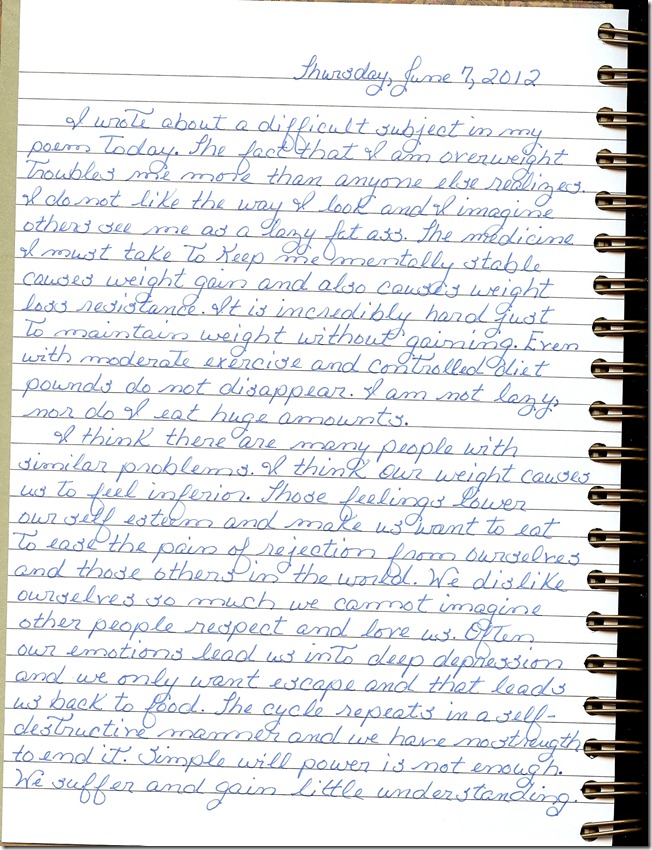 Thursday, June 7, 2012
I wrote about a difficult subject in my
poem today. The fact that I am overweight
troubles me more than anyone else realizes.
I do not like the way I look and I imagine
others see me as a lazy fat ass. The medicine
I must take to keep me mentally stable
causes weight gain and also causes weight
loss resistance. It is incredibly hard just
to maintain weight without gaining. Even
with moderate exercise and controlled diet
pounds do not disappear. I am not lazy,
nor do I eat huge amounts.
I think there are many people with
similar problems. I think our weight causes
us to feel inferior. Those feelings lower
our self esteem and make us want to eat
to ease the pain of rejection from ourselves
and those others in the world. We dislike
ourselves so much we cannot imagine
other people respect and love us. Often
our emotions lead us into deep depression
and we only want escape and that leads
us back to food. The cycle repeats in a self-
destructive manner and we have no strength
to end it. Simple will power is not enough.
We suffer and gain little understanding.